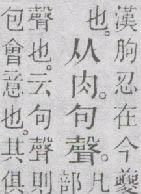 漢朐忍在今夔
也。
从肉。句聲。
凡
部
聲也。云句聲則
包會意也。其俱